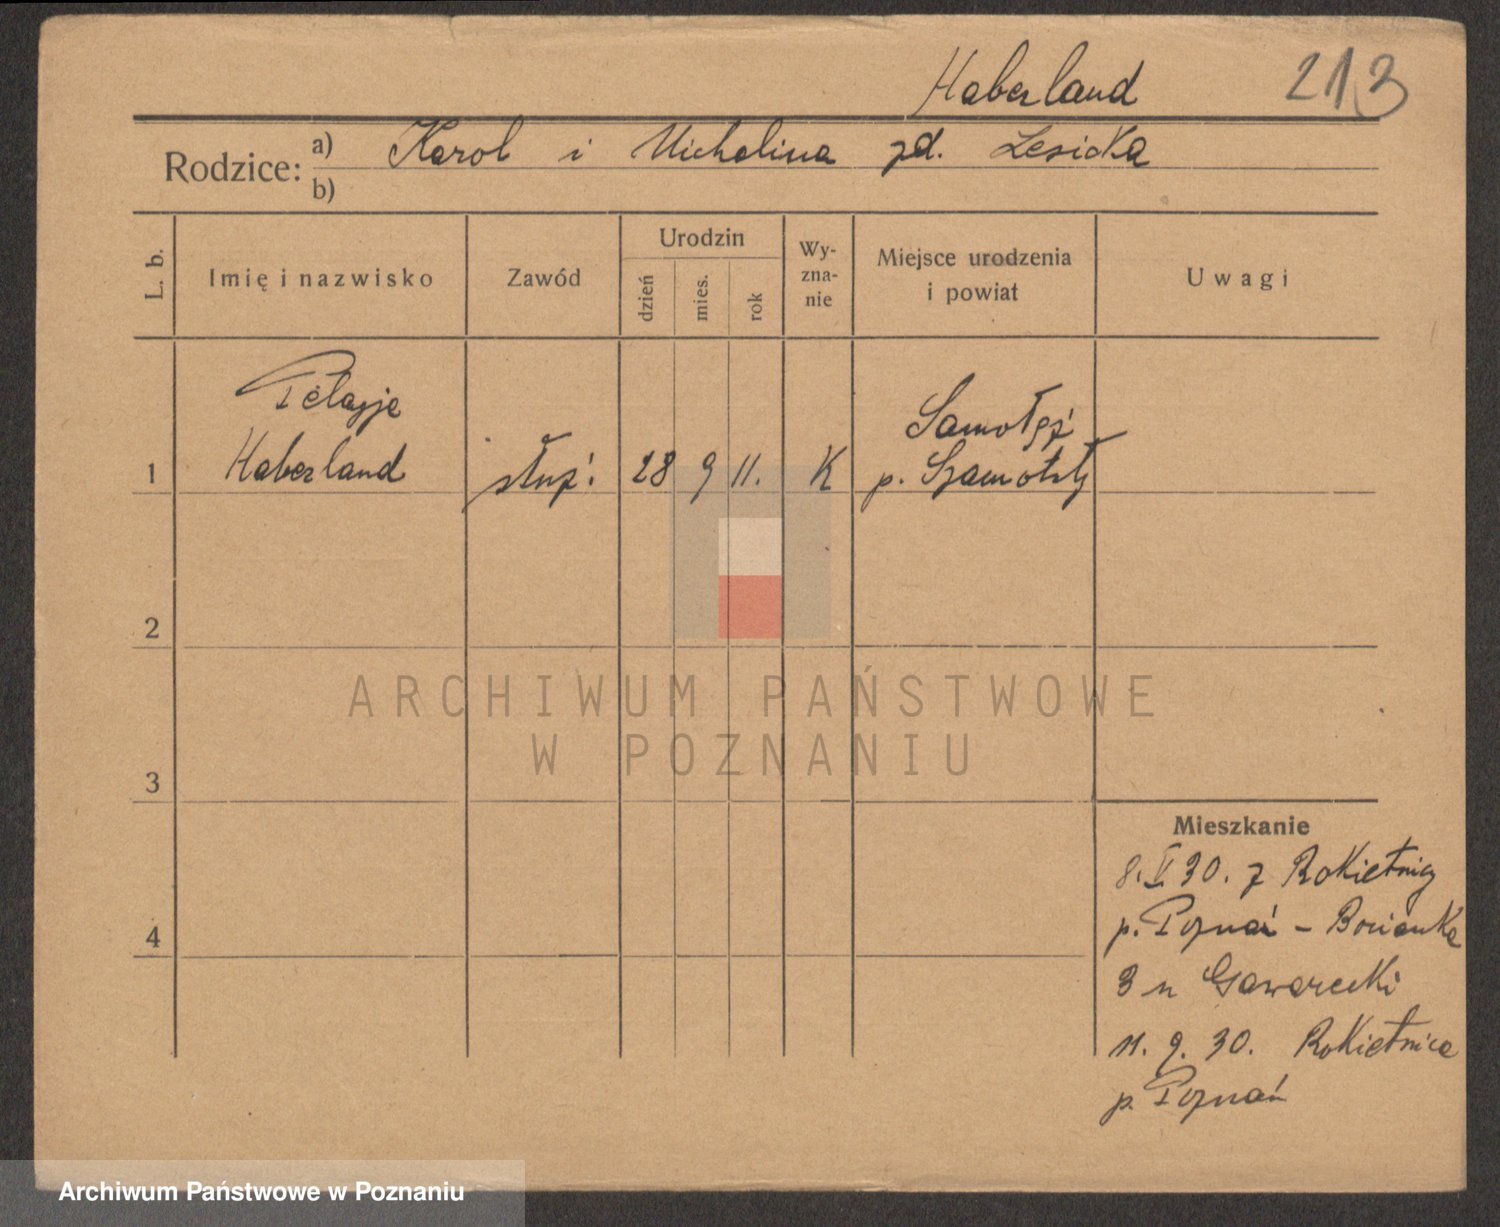 Haberland 213
Rodzice: a) Karol i Michalina zd. Lesicka
b)
L. b. Imię i nazwisko Zawód Urodzin dzień mies. rok Wy-zna-nie Miejsce urodzenia i powiat Uwagi
Pelagje
Haberland
1 służ: 28 9 11. K
Samołęż
p. Szamotuły
2
3
4
ARCHIWUM PAŃSTWOWE
W POZNANIU
Mieszkanie
8. V 30. z Rokietnicy
p. Poznań - Bocianka
3 u Gawarecki
11. 9. 30. Rokietnica
p. Poznań
Archiwum Państwowe w Poznaniu